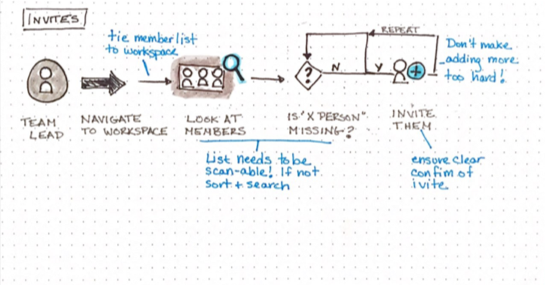 INVITES
tie member list
to workspace
REPEAT
Don't make
adding more
too hard!
?
N
Y
TEAM
LEAD
NAVIGATE
TO WORKSPACE
LOOK AT
MEMBERS
IS "X PERSON"
MISSING?
INVITE
THEM
List needs to be
scan-able! If not
sort + search
ensure clear
confim of
ivite